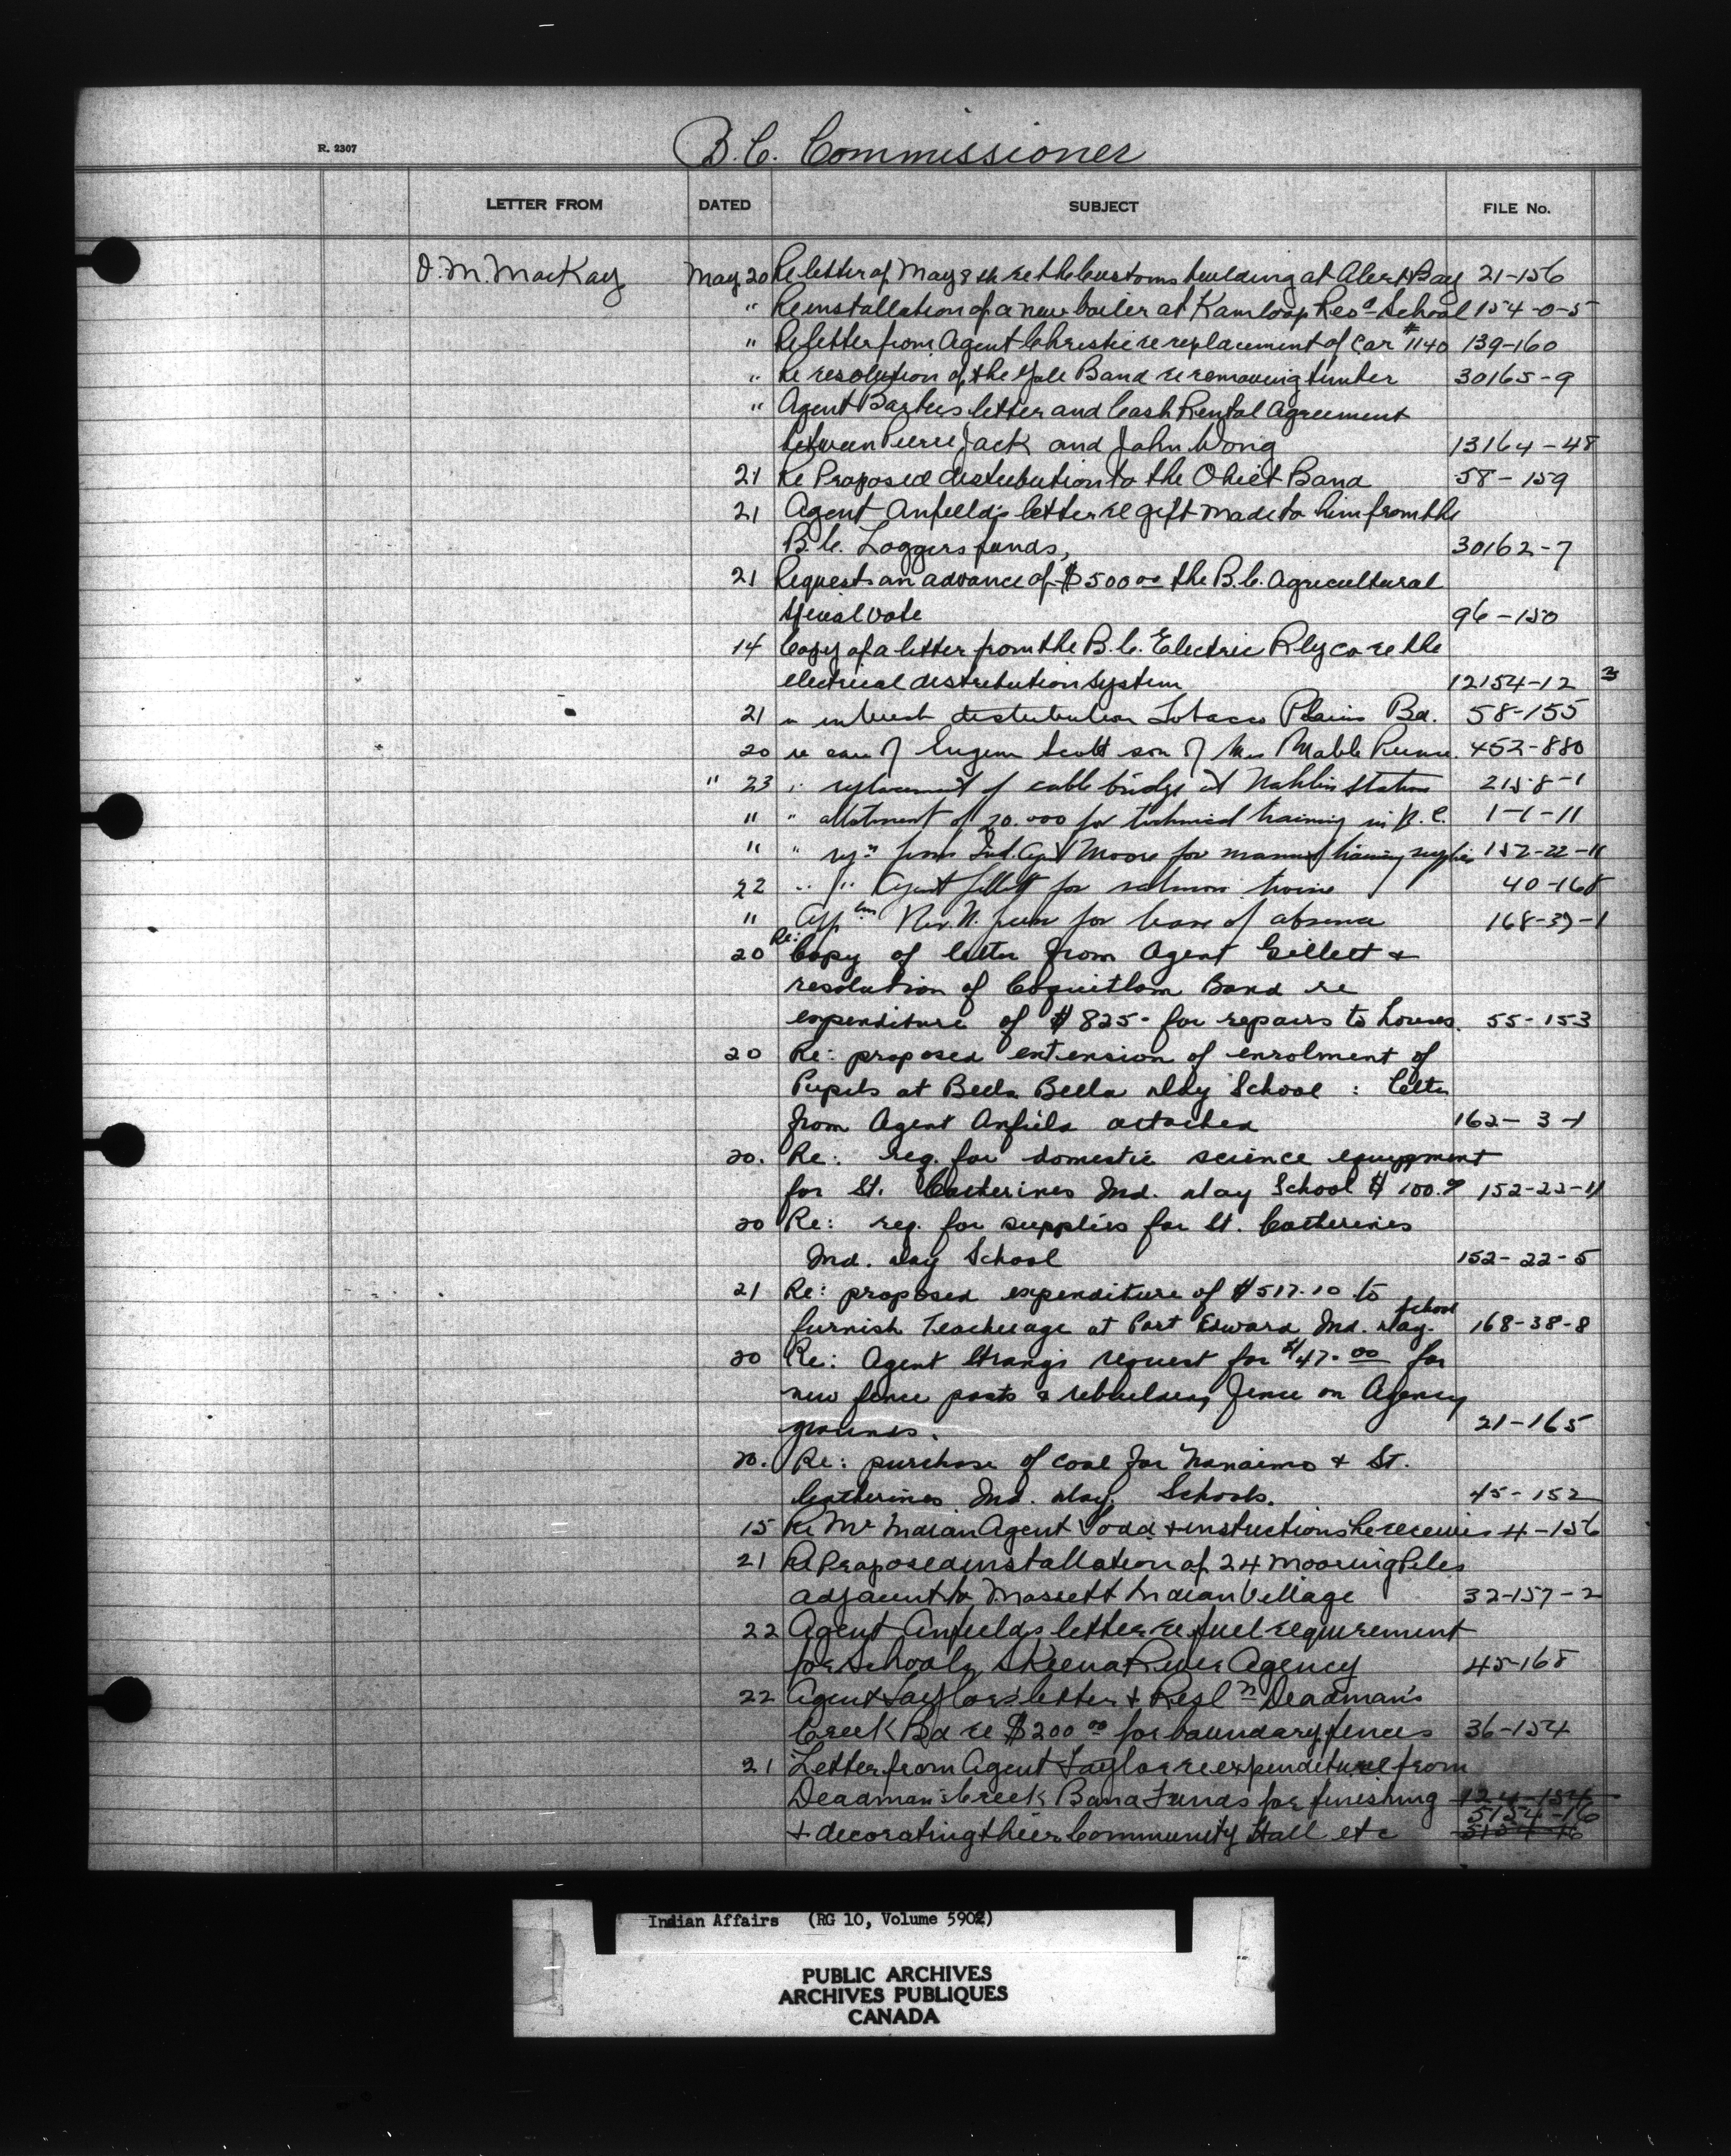 R. 2307
B.C. Commissioner
LETTER FROM DATED SUBJECT FILE No.
D. M. MacKay May 20 Re letter of May 8th re the Customs building at Alert Bay 21-156
" Re installation of a new boiler at Kamloop Res. School 154-0-5
" Re letter from Agent Christie re replacement of Car #1140 139-160
" Re resolution of the Yale Band re removing timber 30165-9
" Agent Barbers letter and Cash Rental Agreement
between Pierre Jack and John Wong 13164-48
21 Re Proposed distribution to the Ohiet Band 58-159
21 Agent Anfield's letter re gift made to him from the
B.C. Loggers funds, 30162-7
21 Requests an advance of $500 00 the B.C. Agricultural
special vote 96-150
14 Copy of a letter from the B.C. Electric Rly Co re the
electrical distribution system 12154-12 3
21 " interest distribution Tobacco Plains Bd. 58-155
20 re case of Eugene Scott son of Mrs Mable 452-880
" 23 " replacement of cable bridge at Nahlin Station 2158-1
" " allotment of 20.000 for technical training in B.C. 1-1-11
" " from Ind. Agt Moore for manual training supplies 152-22-11
22 " " Agent Gillett for salmon twine 40-168
" Rev. N. for leave of absence 168-39-1
20 Re: Copy of letter from Agent Gillett &
resolution of Coquitlam Band re
expenditure of $825- for repairs to houses. 55-153
20 Re: proposed extension of enrolment of
Pupils at Bella Bella Day School : letter
from Agent Anfield attached 162-3-1
20. Re: req. for domestic science equippment
for St. Catherines Ind. Day School $100.9 152-22-11
20 Re: req. for supplies for St. Catherines
Ind. Day School 152-22-5
21 Re: proposed expenditure of $517.10 to
furnish Teacherage at Port Edward Ind. Day School 168-38-8
20 Re: Agent Strang's request for $47.00 for
new fence posts & rebuilding fence on Agency
grounds. 21-165
20. Re: purchase of coal for Nanaimo & St.
Catherines Ind. Day Schools. 45-152
15 Re Mr Indian Agent Todd & instructions he receives 4-156
21 Re Proposed installation of 24 mooring Piles
adjacent to Massett Indian Village 32-157-2
22 Agent Anfields letter re fuel requirement
for Schools Skeena River Agency 45-168
22 Agent Taylors letter & Resln Deadman's
Creek Bd re $200 00 for boundary fences 36-154
21 Letter from Agent Taylor re expenditure from
Deadman's Creek Band Funds for finishing 124-154
5154-16
& decorating their Community Hall etc 5154-16
Indian Affairs (RG 10, Volume 5902)
PUBLIC ARCHIVES
ARCHIVES PUBLIQUES
CANADA